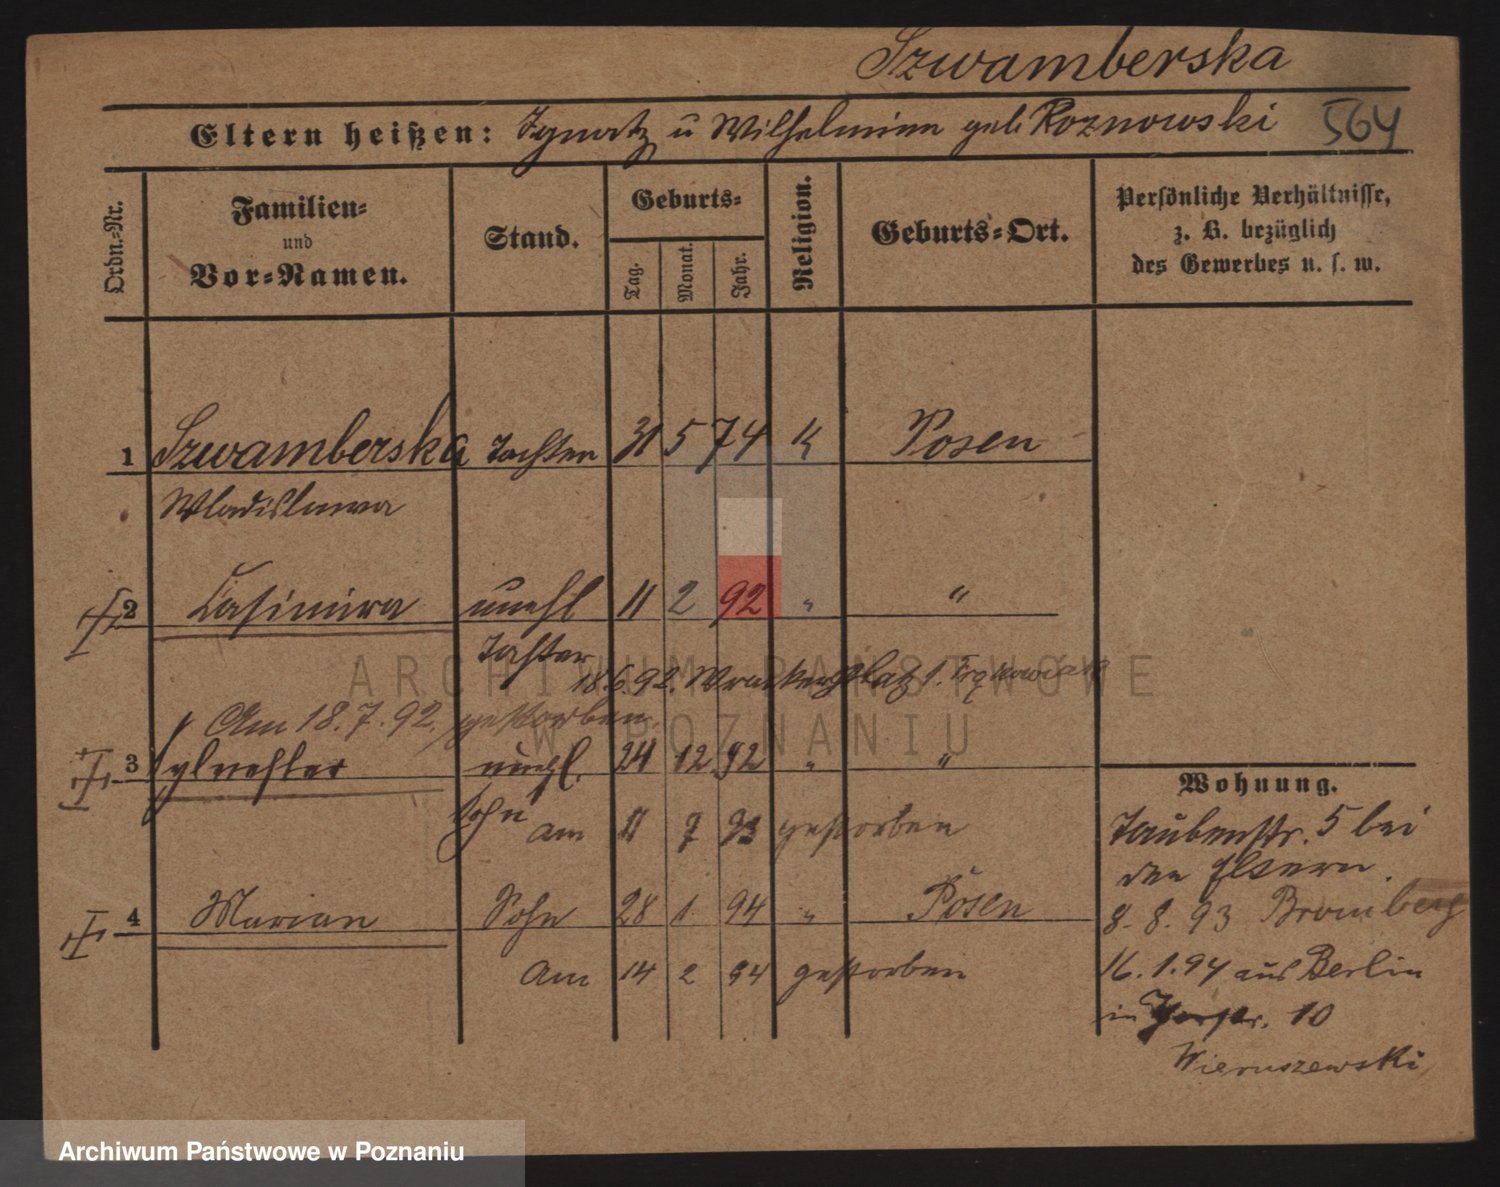 Szwamberska
Eltern heißen: Ignatz u Wilhelmine geb. Roznowski 564
Ordn.-Nr. Familien- und Vor-Namen. Stand. Geburts- Tag. Monat. Jahr. Religion. Geburts-Ort. Persönliche Verhältnisse, z. B. bezüglich des Gewerbes u. s. w.
1 Szwamberska Tochter 31 5 74 K Posen
Wladislawa
2 Casimira unehl 11 2 92 " "
Tochter
18.6.92. 1.
Am 18.7.92. gestorben.
3 Sylvester unehl. 24 12 92 " "
Sohn am 11 7 93 gestorben
4 Marian Sohn 28 1 94 " Posen
Am 14 2 94 gestorben
Wohnung.
Taubenstr. 5 bei
den Eltern.
8.8.93 Bromberg
16.1.94 aus Berlin
in 10
Wieruszewski
ARCHIWUM PAŃSTWOWE
W POZNANIU
Archiwum Państwowe w Poznaniu